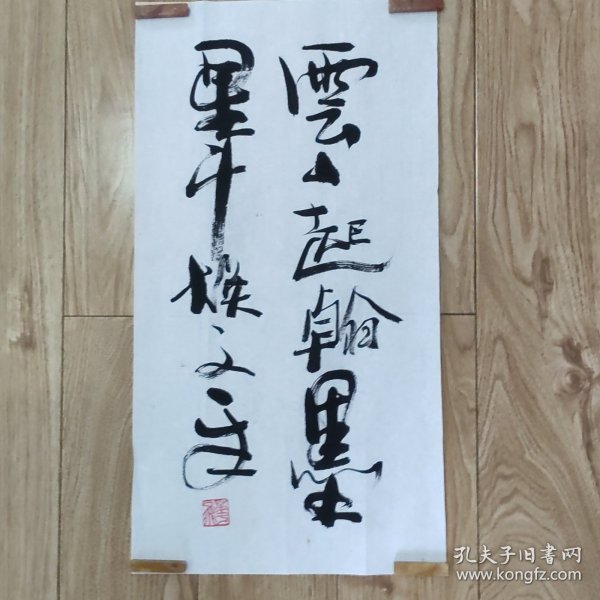 雲山起翰墨
星斗焕文章
孔夫子旧书网
www.kongfz.com